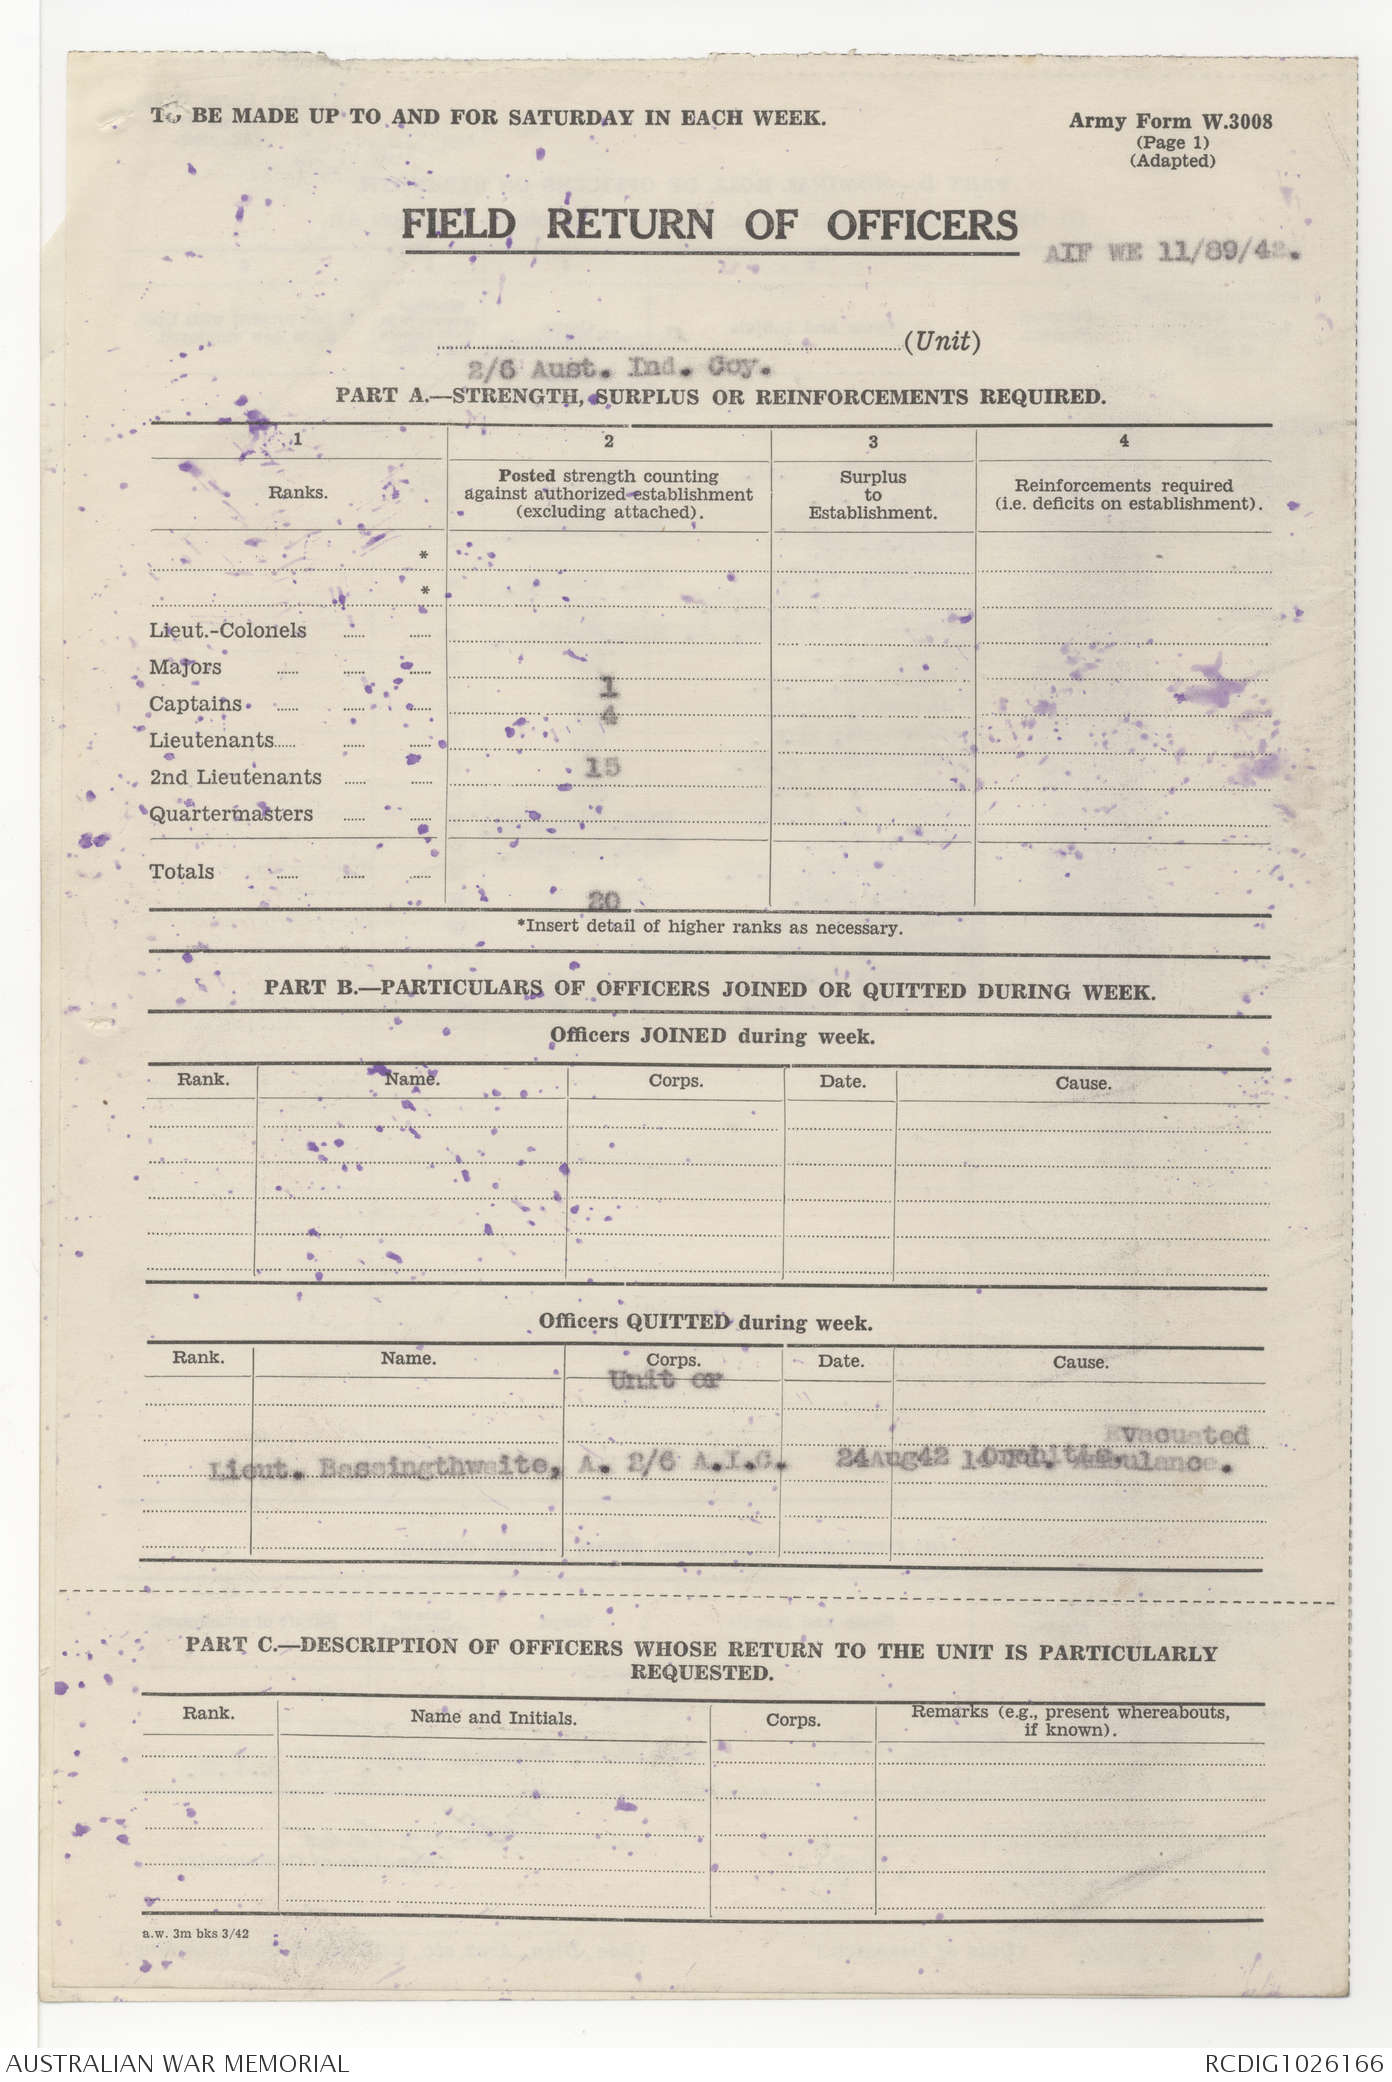 TO BE MADE UP TO AND FOR SATURDAY IN EACH WEEK.
Army Form W.3008
(Page 1)
(Adapted)
FIELD RETURN OF OFFICERS
AIF WE 11/89/42.
(Unit)
2/6 Aust. Ind. Coy.
PART A.—STRENGTH, SURPLUS OR REINFORCEMENTS REQUIRED.
1 2 3 4
Ranks.
Posted strength counting
against authorized establishment
(excluding attached).
Surplus
to
Establishment.
Reinforcements required
(i.e. deficits on establishment).
*
*
Lieut.-Colonels
Majors 1
Captains 4
Lieutenants 15
2nd Lieutenants
Quartermasters
Totals 20
*Insert detail of higher ranks as necessary.
PART B.—PARTICULARS OF OFFICERS JOINED OR QUITTED DURING WEEK.
Officers JOINED during week.
Rank. Name. Corps. Date. Cause.
Officers QUITTED during week.
Rank. Name. Corps. Date. Cause.
Unit or
Evacuated
Lieut. Bassingthwaite, A. 2/6 A.I.C. 24Aug42 14 Ambulance.
PART C.—DESCRIPTION OF OFFICERS WHOSE RETURN TO THE UNIT IS PARTICULARLY
REQUESTED.
Rank. Name and Initials. Corps. Remarks (e.g., present whereabouts,
if known).
a.w. 3m bks 3/42
AUSTRALIAN WAR MEMORIAL
RCDIG1026166